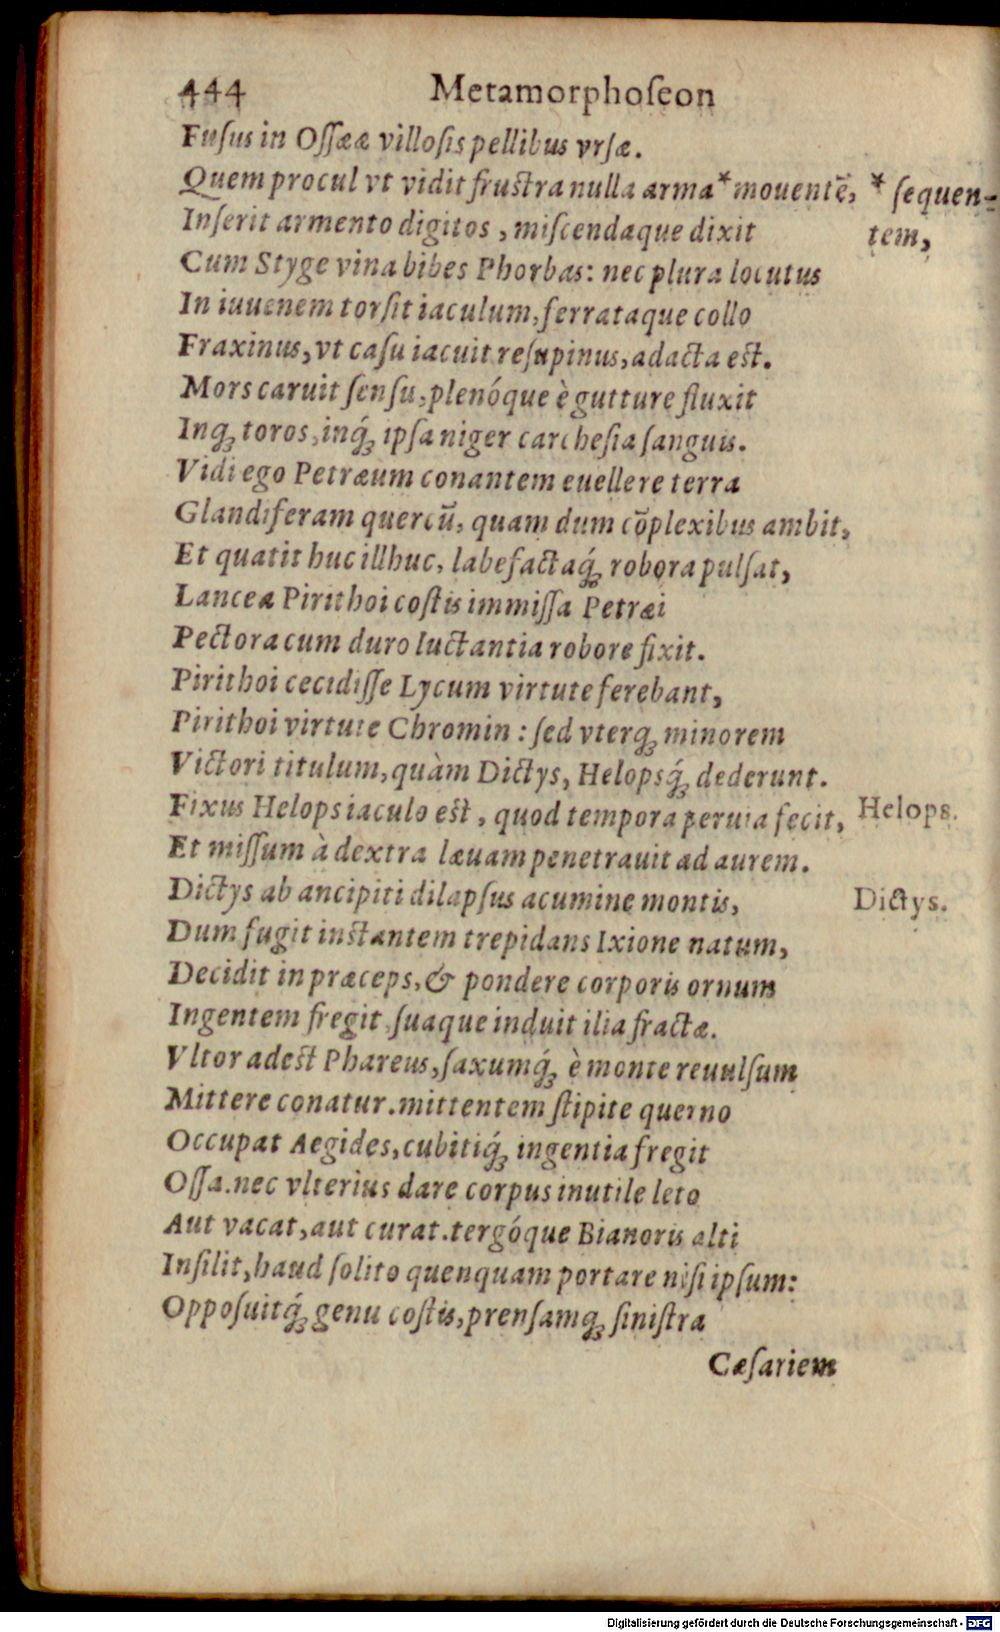 444 Metamorphoſeon
Fuſus in Oſſææ villoſis pellibus vrſæ.
Quem procul vt vidit fruſtra nulla arma * mouentē, * ſequen-
Inſerit armento digitos, miſcendaque dixit tem,
Cum Styge vina bibes Phorbas: nec plura locutus
In iuuenem torſit iaculum, ferrataque collo
Fraxinus, vt caſu iacuit reſupinus, adacta est.
Mors caruit ſenſu, plenóque è gutture fluxit
Inq́ꝫ toros, inq́ꝫ ipſa niger carcheſia ſanguis.
Vidi ego Petræum conantem euellere terra
Glandiferam quercū, quam dum cōplexibus ambit,
Et quatit huc illhuc, labefactaq́ꝫ robora pulſat,
Lancea Pirithoi coſtis immiſſa Petræi
Pectora cum duro luctantia robore fixit.
Pirithoi cecidiſſe Lycum virtute ferebant,
Pirithoi virtute Chromin: ſed vterqꝫ minorem
Victori titulum, quàm Dictys, Helopsq́ꝫ dederunt.
Fixus Helops iaculo est, quod tempora peruia fecit, Helops.
Et miſſum à dextra læuam penetrauit ad aurem.
Dictys ab ancipiti dilapſus acumine montis, Dictys.
Dum fugit instantem trepidans Ixione natum,
Decidit in præceps, & pondere corporis ornum
Ingentem fregit, ſuaque induit ilia fractæ.
Vltor adest Phareus, ſaxumq́ꝫ è monte reuulſum
Mittere conatur. mittentem ſtipite querno
Occupat Aegides, cubitiq́ꝫ ingentia fregit
Oſſa. nec vlterius dare corpus inutile leto
Aut vacat, aut curat. tergóque Bianoris alti
Inſilit, haud ſolito quenquam portare niſi ipſum:
Oppoſuitq́ꝫ genu coſtis, prenſamqꝫ ſiniſtra
Cæſariem
Digitalisierung gefördert durch die Deutsche Forschungsgemeinschaft - DFG